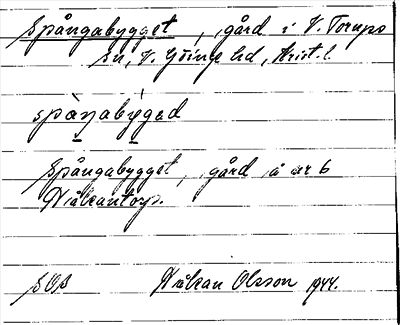 Spångabygget, gård i V. Torups
sn, V. Göinge hd, Krist. l.
spàŋabýgəd
Spångabygget, gård å ar 6
Håkantorp.
SOB Håkan Olsson 1944.